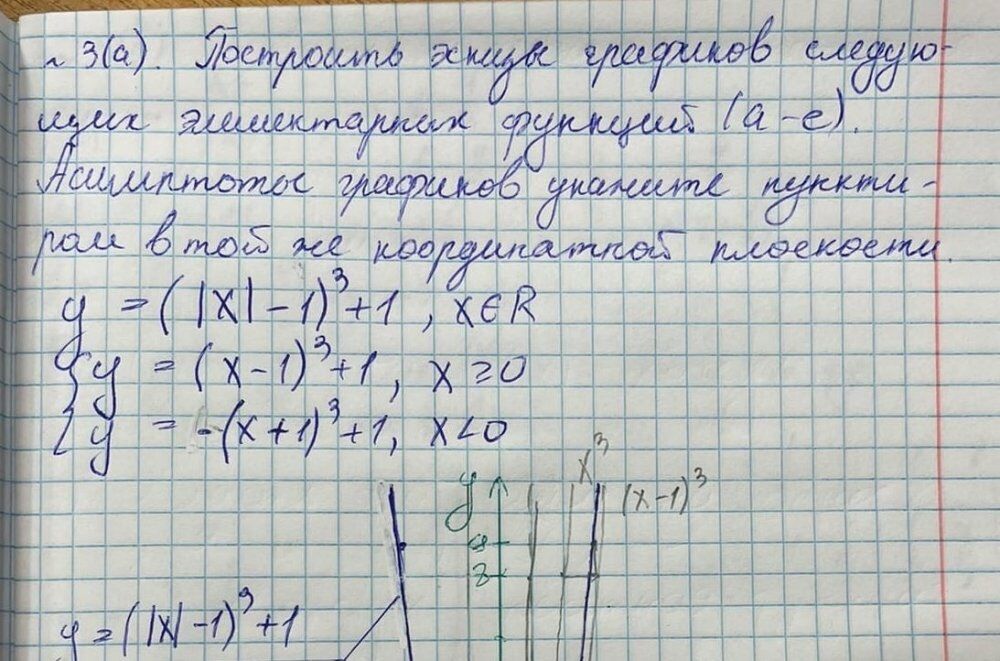 № 3(а). Построить эскизы графиков следую-
щих элементарных функций (а-е).
Асимптоты графиков укажите пункти-
ром в той же координатной плоскости.
y = (|x|-1)³+1, x∈R
{ y = (x-1)³+1, x≥0
y = -(x+1)³+1, x<0
y x³ (x-1)³
y = (|x|-1)³+1